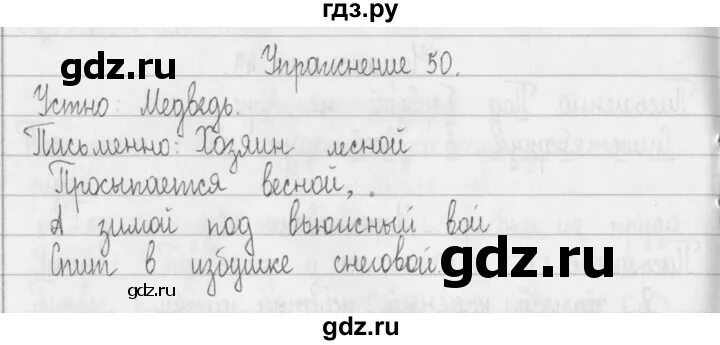 гдз.ру
Упражнение 50.
gdz.ru
gdz.ru
Устно Медведь.
Письменно: Хозяин лесной
Просыпается весной,
А зимой под вьюжный вой
Спит в избушке снеговой.
gdz.ru
gdz.ru
gdz.ru